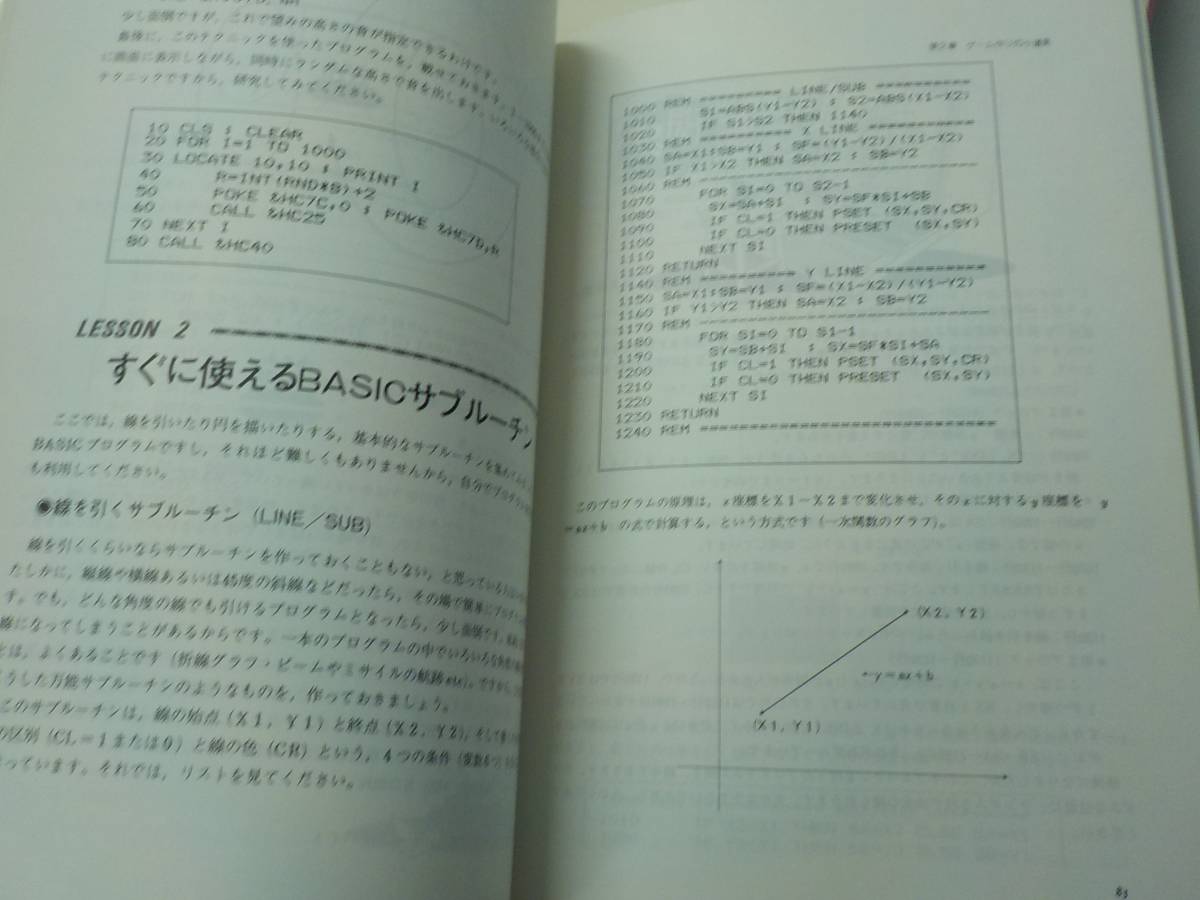 少し面倒ですが、これで望みの高さの音が指定できるわけです。
最後に、このテクニックを使ったプログラムも、載せておきます。
に画面に表示しながら、同時にランダムな高さで音を出します。いろいろな
テクニックですから、研究してみてください。
10 CLS : CLEAR
20 FOR I=1 TO 1000
30 LOCATE 10,10 : PRINT I
40 R=INT(RND*8)+2
50 POKE &HC7C,0 : POKE &HC7D,R
60 CALL &HC25
70 NEXT I
80 CALL &HC40
LESSON 2
すぐに使えるBASICサブルーチン
ここでは、線を引いたり円を描いたりする、基本的なサブルーチンを集めて
BASICプログラムですし、それほど難しくもありませんから、自分でプログラム
も利用してください。
●線を引くサブルーチン (LINE/SUB)
線を引くくらいならサブルーチンを作っておくこともない、と思っている
たしかに、縦線や横線あるいは45度の斜線などだったら、その場で簡単に
す。でも、どんな角度の線でも引けるプログラムとなったら、少し面倒です。
線になってしまうことがあるからです。一本のプログラムの中でいろいろな
とは、よくあることです (折線グラフ・ビームやミサイルの航跡etc)。ですから、
うした万能サブルーチンのようなものを、作っておきましょう。
このサブルーチンは、線の始点 (X1, Y1) と終点 (X2, Y2)、そして
の区別 (CL=1または0) と線の色 (CR) という、4つの条件
っています。それでは、リストを見てください。
1000 REM ========= LINE/SUB =========
1010 S1=ABS(Y1-Y2) : S2=ABS(X1-X2)
1020 IF S1>S2 THEN 1140
1030 REM ========== X LINE ===========
1040 SA=X1:SB=Y1 : SF=(Y1-Y2)/(X1-X2)
1050 IF X1>X2 THEN SA=X2 : SB=Y2
1060 REM -----------------------------
1070 FOR SI=0 TO S2-1
1080 SX=SA+SI : SY=SF*SI+SB
1090 IF CL=1 THEN PSET (SX,SY,CR)
1100 IF CL=0 THEN PRESET (SX,SY)
1110 NEXT SI
1120 RETURN
1140 REM ========== Y LINE ===========
1150 SA=X1:SB=Y1 : SF=(X1-X2)/(Y1-Y2)
1160 IF Y1>Y2 THEN SA=X2 : SB=Y2
1170 REM -----------------------------
1180 FOR SI=0 TO S1-1
1190 SY=SB+SI : SX=SF*SI+SA
1200 IF CL=1 THEN PSET (SX,SY,CR)
1210 IF CL=0 THEN PRESET (SX,SY)
1220 NEXT SI
1230 RETURN
1240 REM =============================
このプログラムの原理は、x座標をX1−X2まで変化させ、そのxに対するy座標を y
=ax+b の式で計算する、という方式です (一次関数のグラフ)。
(X2, Y2)
←y=ax+b
(X1, Y1)
83